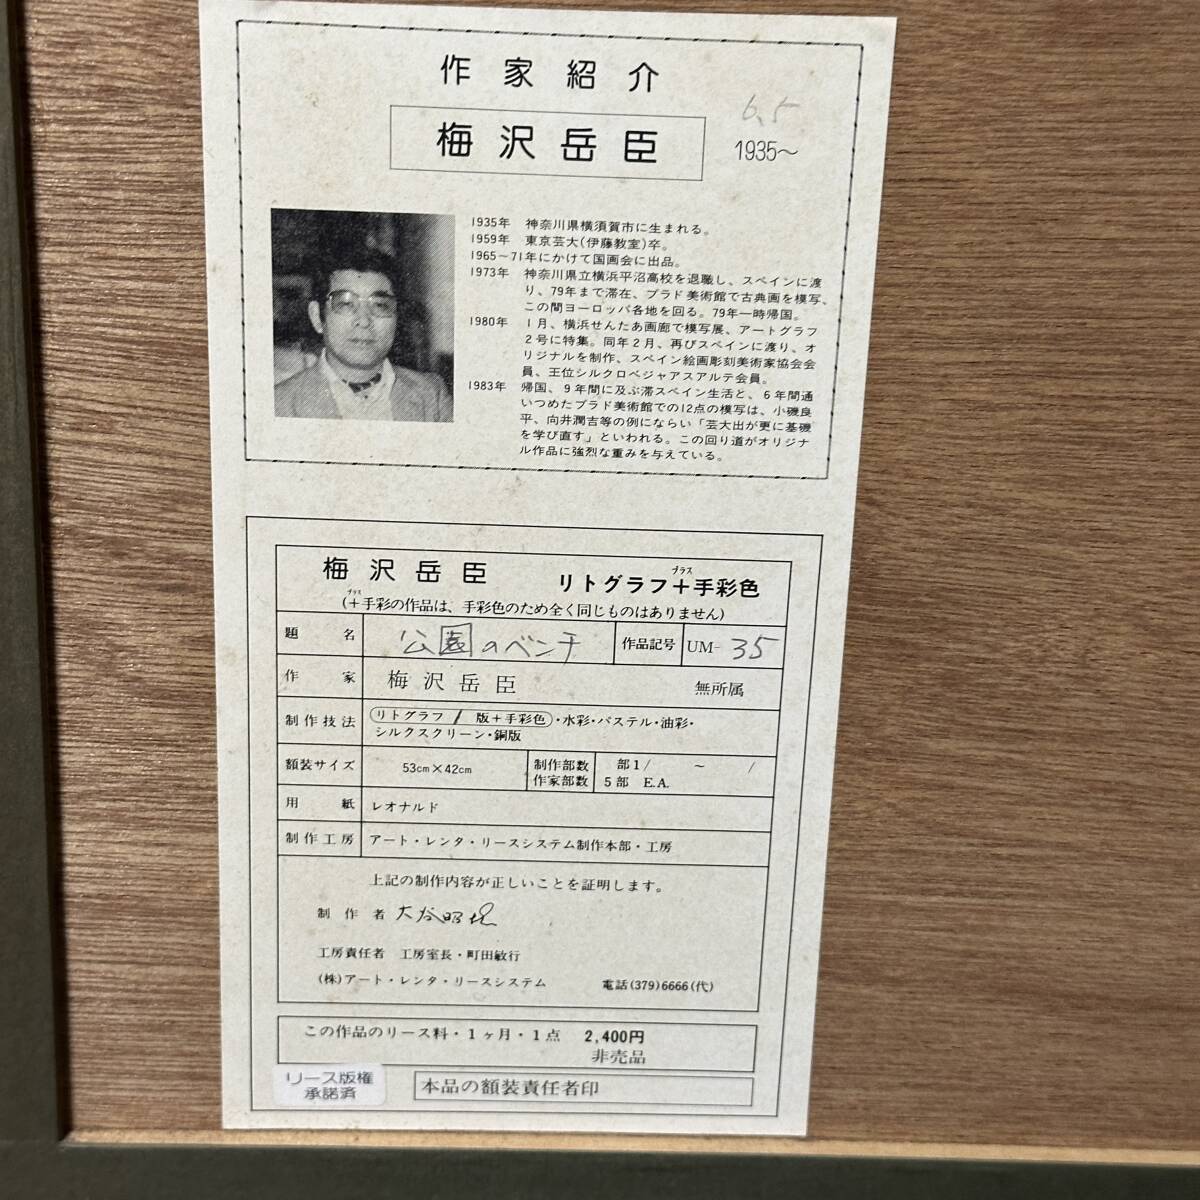 作家紹介
梅沢岳臣
6.5
1935～
1935年 神奈川県横須賀市に生まれる。
1959年 東京芸大(伊藤教室)卒。
1965～71年にかけて国画会に出品。
1973年 神奈川県立横浜平沼高校を退職し、スペインに渡
り、79年まで滞在、プラド美術館で古典画を模写、
この間ヨーロッパ各地を回る。79年一時帰国。
1980年 1月、横浜せんたあ画廊で模写展、アートグラフ
2号に特集。同年2月、再びスペインに渡り、オ
リジナルを制作、スペイン絵画彫刻美術家協会会
員、王位シルクロベジャアスアルテ会員。
1983年 帰国、9年間に及ぶ滞スペイン生活と、6年間通
いつめたプラド美術館での12点の模写は、小磯良
平、向井潤吉等の例にならい「芸大出が更に基礎
を学び直す」といわれる。この回り道がオリジナ
ル作品に強烈な重みを与えている。
梅沢岳臣 リトグラフ+手彩色
プラス
プラス
(+手彩の作品は、手彩色のため全く同じものはありません)
題名 公園のベンチ 作品記号 UM- 35
作家 梅沢岳臣 無所属
制作技法 リトグラフ / 版+手彩色・水彩・パステル・油彩・
シルクスクリーン・銅版
額装サイズ 53cm×42cm 制作部数 部1/ ～ /
作家部数 5部 E.A.
用紙 レオナルド
制作工房 アート・レンタ・リースシステム制作本部・工房
上記の制作内容が正しいことを証明します。
制作者
工房責任者 工房室長・町田敏行
(株)アート・レンタ・リースシステム 電話(379)6666(代)
この作品のリース料・1ヶ月・1点 2,400円
非売品
リース版権
承諾済
本品の額装責任者印